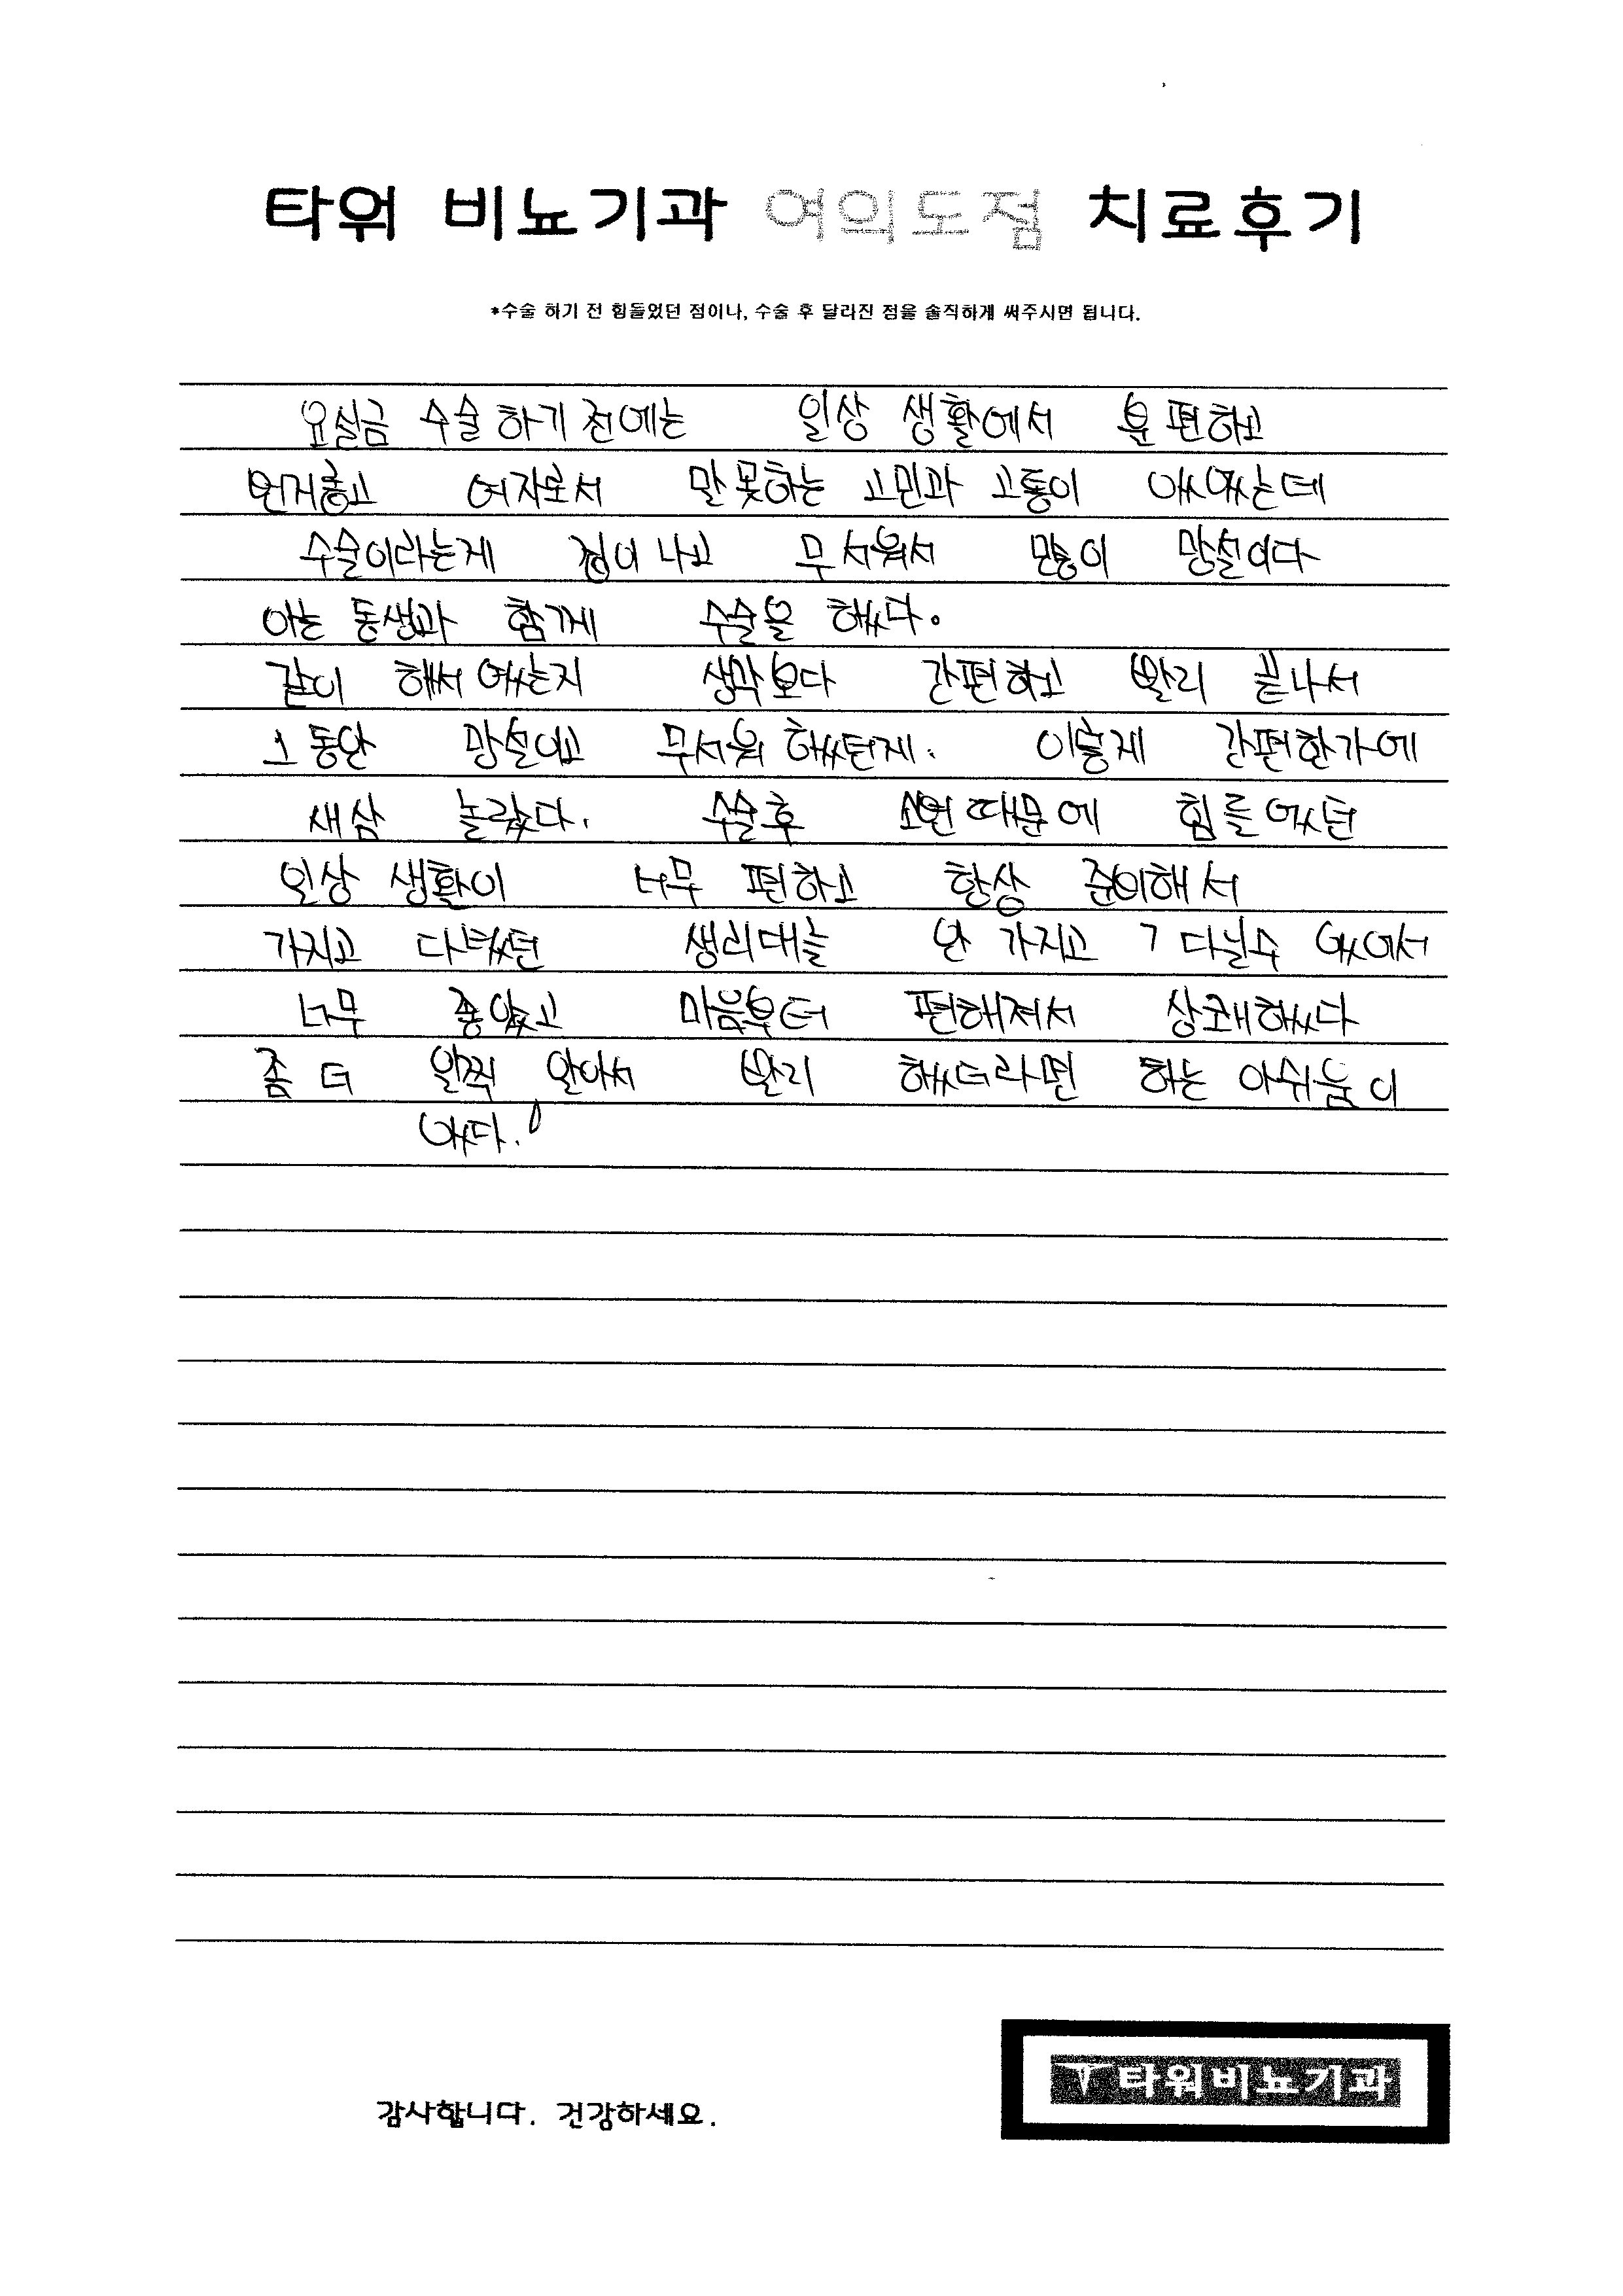 타워 비뇨기과 여의도점 치료후기
*수술 하기 전 힘들었던 점이나, 수술 후 달라진 점을 솔직하게 써주시면 됩니다.
요실금 수술하기 전에는 일상 생활에서 불편하고
번거롭고 여자로서 말 못하는 고민과 고통이 있었는데
수술이라는게 겁이 나고 무서워서 많이 망설이다
아는 동생과 함께 수술을 했다.
같이 해서 였는지 생각보다 간편하고 빨리 끝나서
그동안 망설이고 무서워 했던게. 이렇게 간편한가에
새삼 놀랐다. 수술후 소변 때문에 힘들었던
일상 생활이 너무 편하고 항상 준비해서
가지고 다녔던 생리대를 안 가지고 다닐수 있어서
너무 좋았고 마음부터 편해져서 상쾌했다
좀 더 일찍 알아서 빨리 했더라면 하는 아쉬움이
있다.!
감사합니다. 건강하세요.
타워비뇨기과